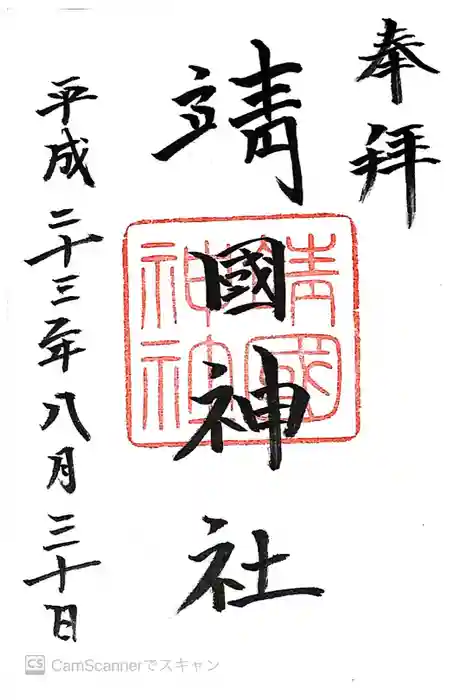 奉拝
靖國神社
靖國神社
平成二十三年八月三十日
CS CamScannerでスキャン